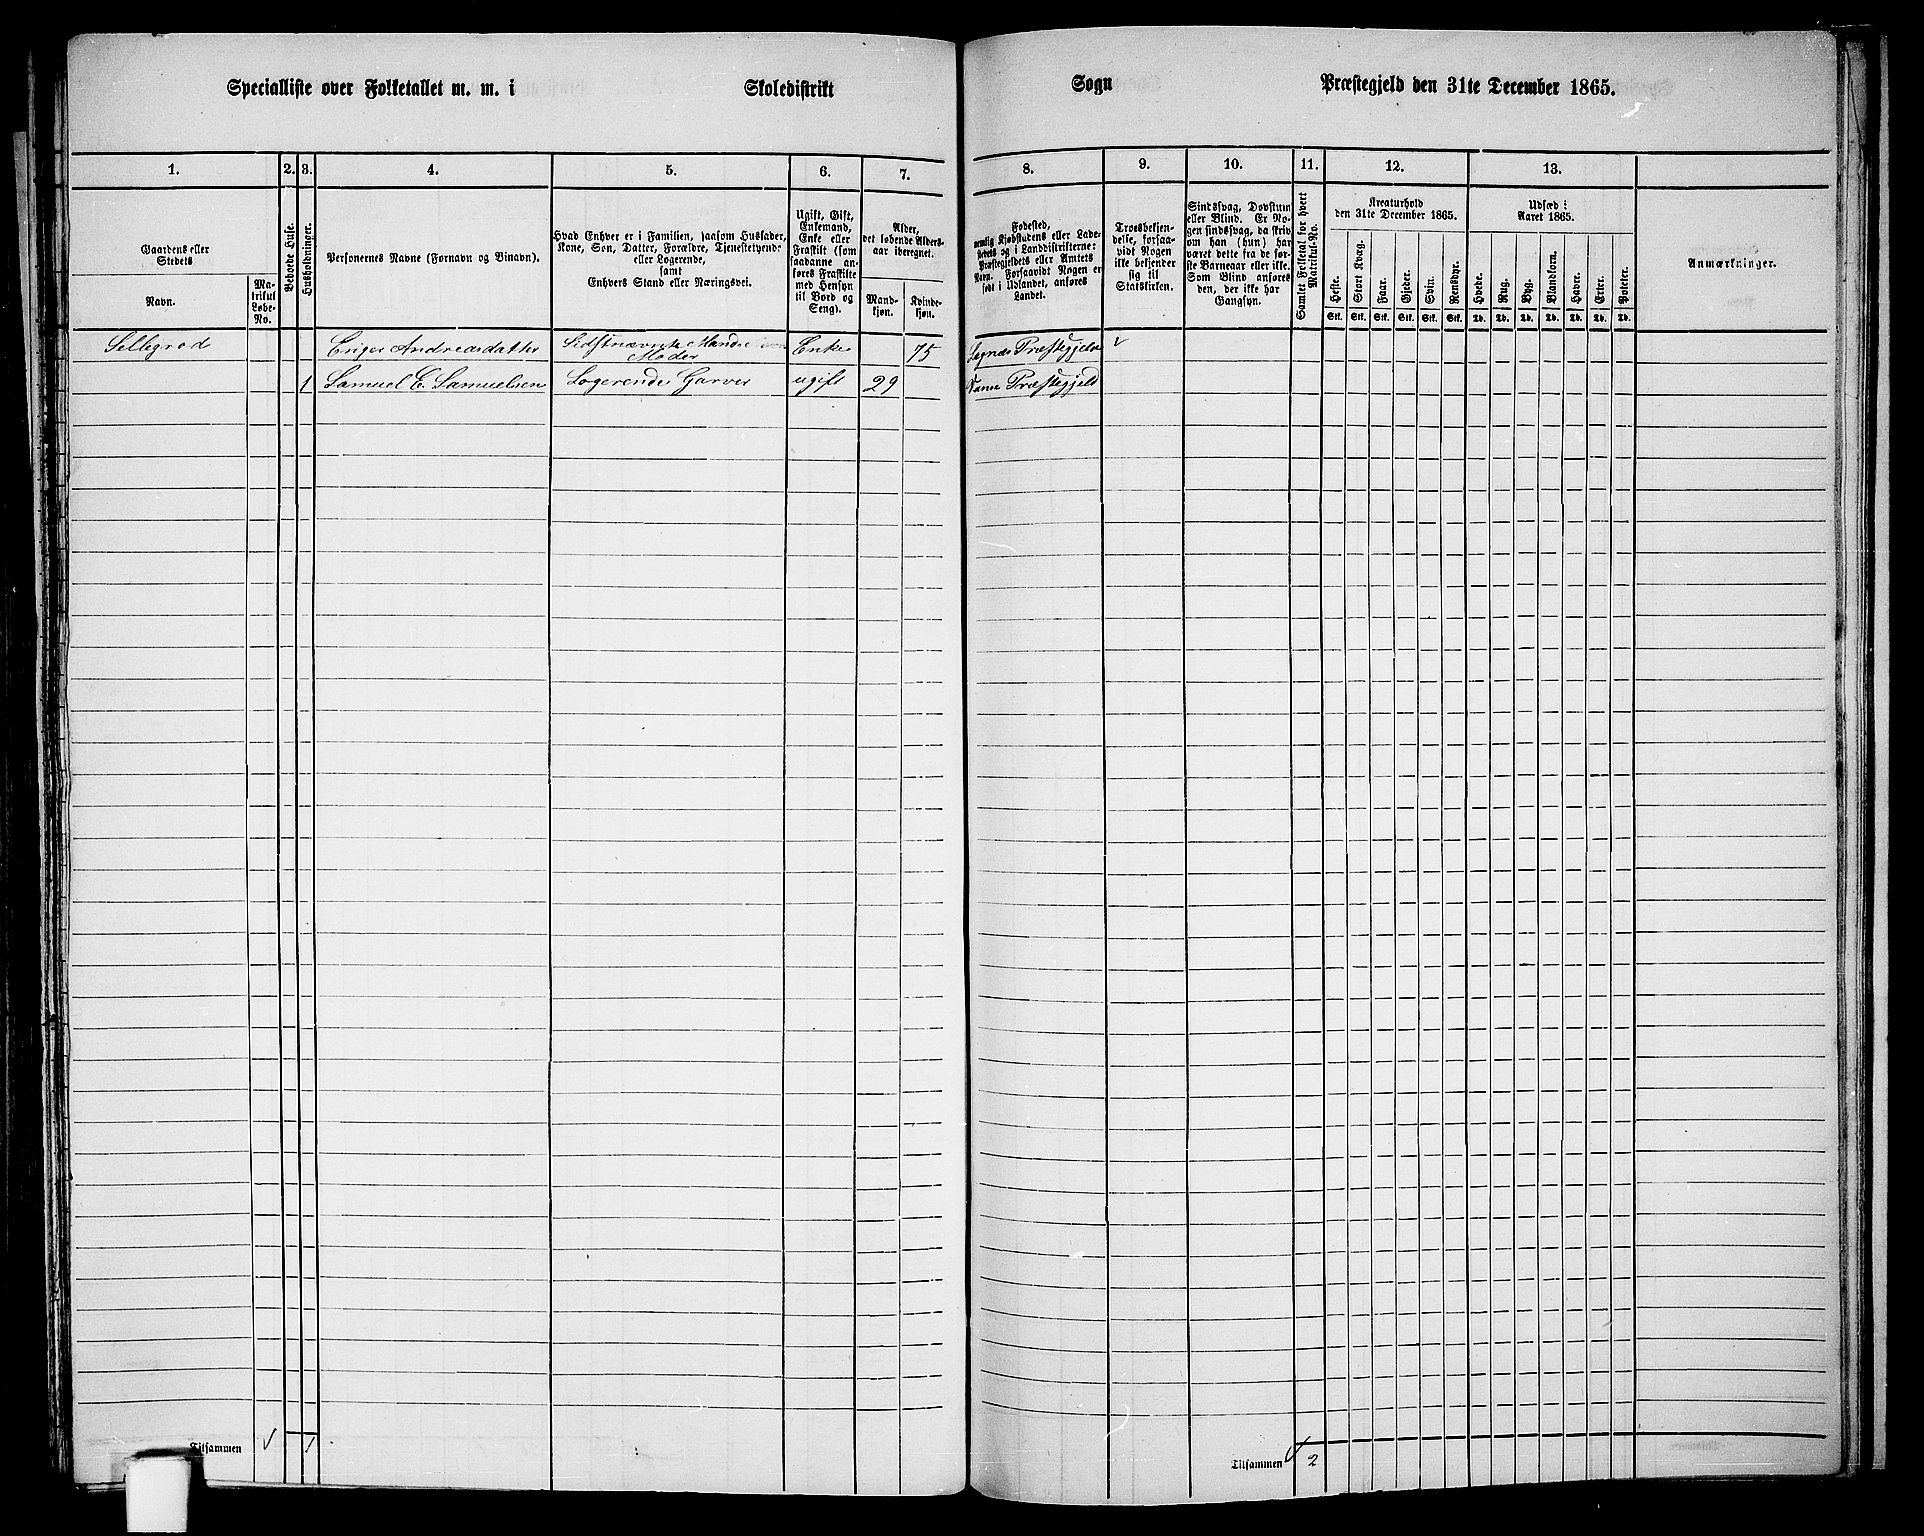 Specialliste over Folketallet m. m. i Skoledistrikt Sogn Præstegjeld den 31te December 1865.
1. 2. 3. 4. 5. 6. 7. 8. 9. 10. 11. 12. 13.
Gaardens eller
Stedets
Navn.
Ma-
trikul
Løbe-
No.
Beboede Huse.
Husholdninger.
Personernes Navne (Fornavn og Binavn).
Hvad Enhver er i Familien, saasom Husfader,
Kone, Søn, Datter, Forældre, Tjenestetyende
eller Logerende,
samt
Enhvers Stand eller Næringsvei.
Ugift, Gift,
Enkemand,
Enke eller
Fraskilt (som
saadanne an-
føres Fraskilte
med Hensyn
til Bord og
Seng).
Alder,
det løbende Alders-
aar iberegnet.
Mand-
kjøn.
Kvinde-
kjøn.
Fødested,
nemlig Kjøbstadens eller Lade-
stedets og i Landdistrikterne:
Præstegjeldets eller Amtets
Navn. Forsaavidt Nogen er
født i Udlandet, anføres
Landet.
Troesbekjen-
delse, forsaa-
vidt Nogen
ikke bekjender
sig til
Statskirken.
Sindssvag, Døvstum
eller Blind. Er No-
gen sindssvag, da skriv
om han (hun) har
været dette fra de før-
ste Barneaar eller ikke.
Som Blind anføres
den, der ikke har
Gangsyn.
Samlet Folketal for hvert
Matrikul-No.
Kreaturhold
den 31te December 1865.
Heste. Stort Kvæg. Faar. Gjeder. Svin. Rensdyr.
Stk. Stk. Stk. Stk. Stk. Stk.
Udsæd i
Aaret 1865.
Hvede. Rug. Byg. Blandkorn. Havre. Erter. Poteter.
Td. Td. Td. Td. Td. Td. Td.
Anmærkninger.
Sellegrod Andreasdatter Sidstnævnte Mands Moder Enke 75 Præstegjeld
1 Samuel E. Samuelsen Logerende Garver ugift 29 Præstegjeld
Tilsammen 1 Tilsammen 2